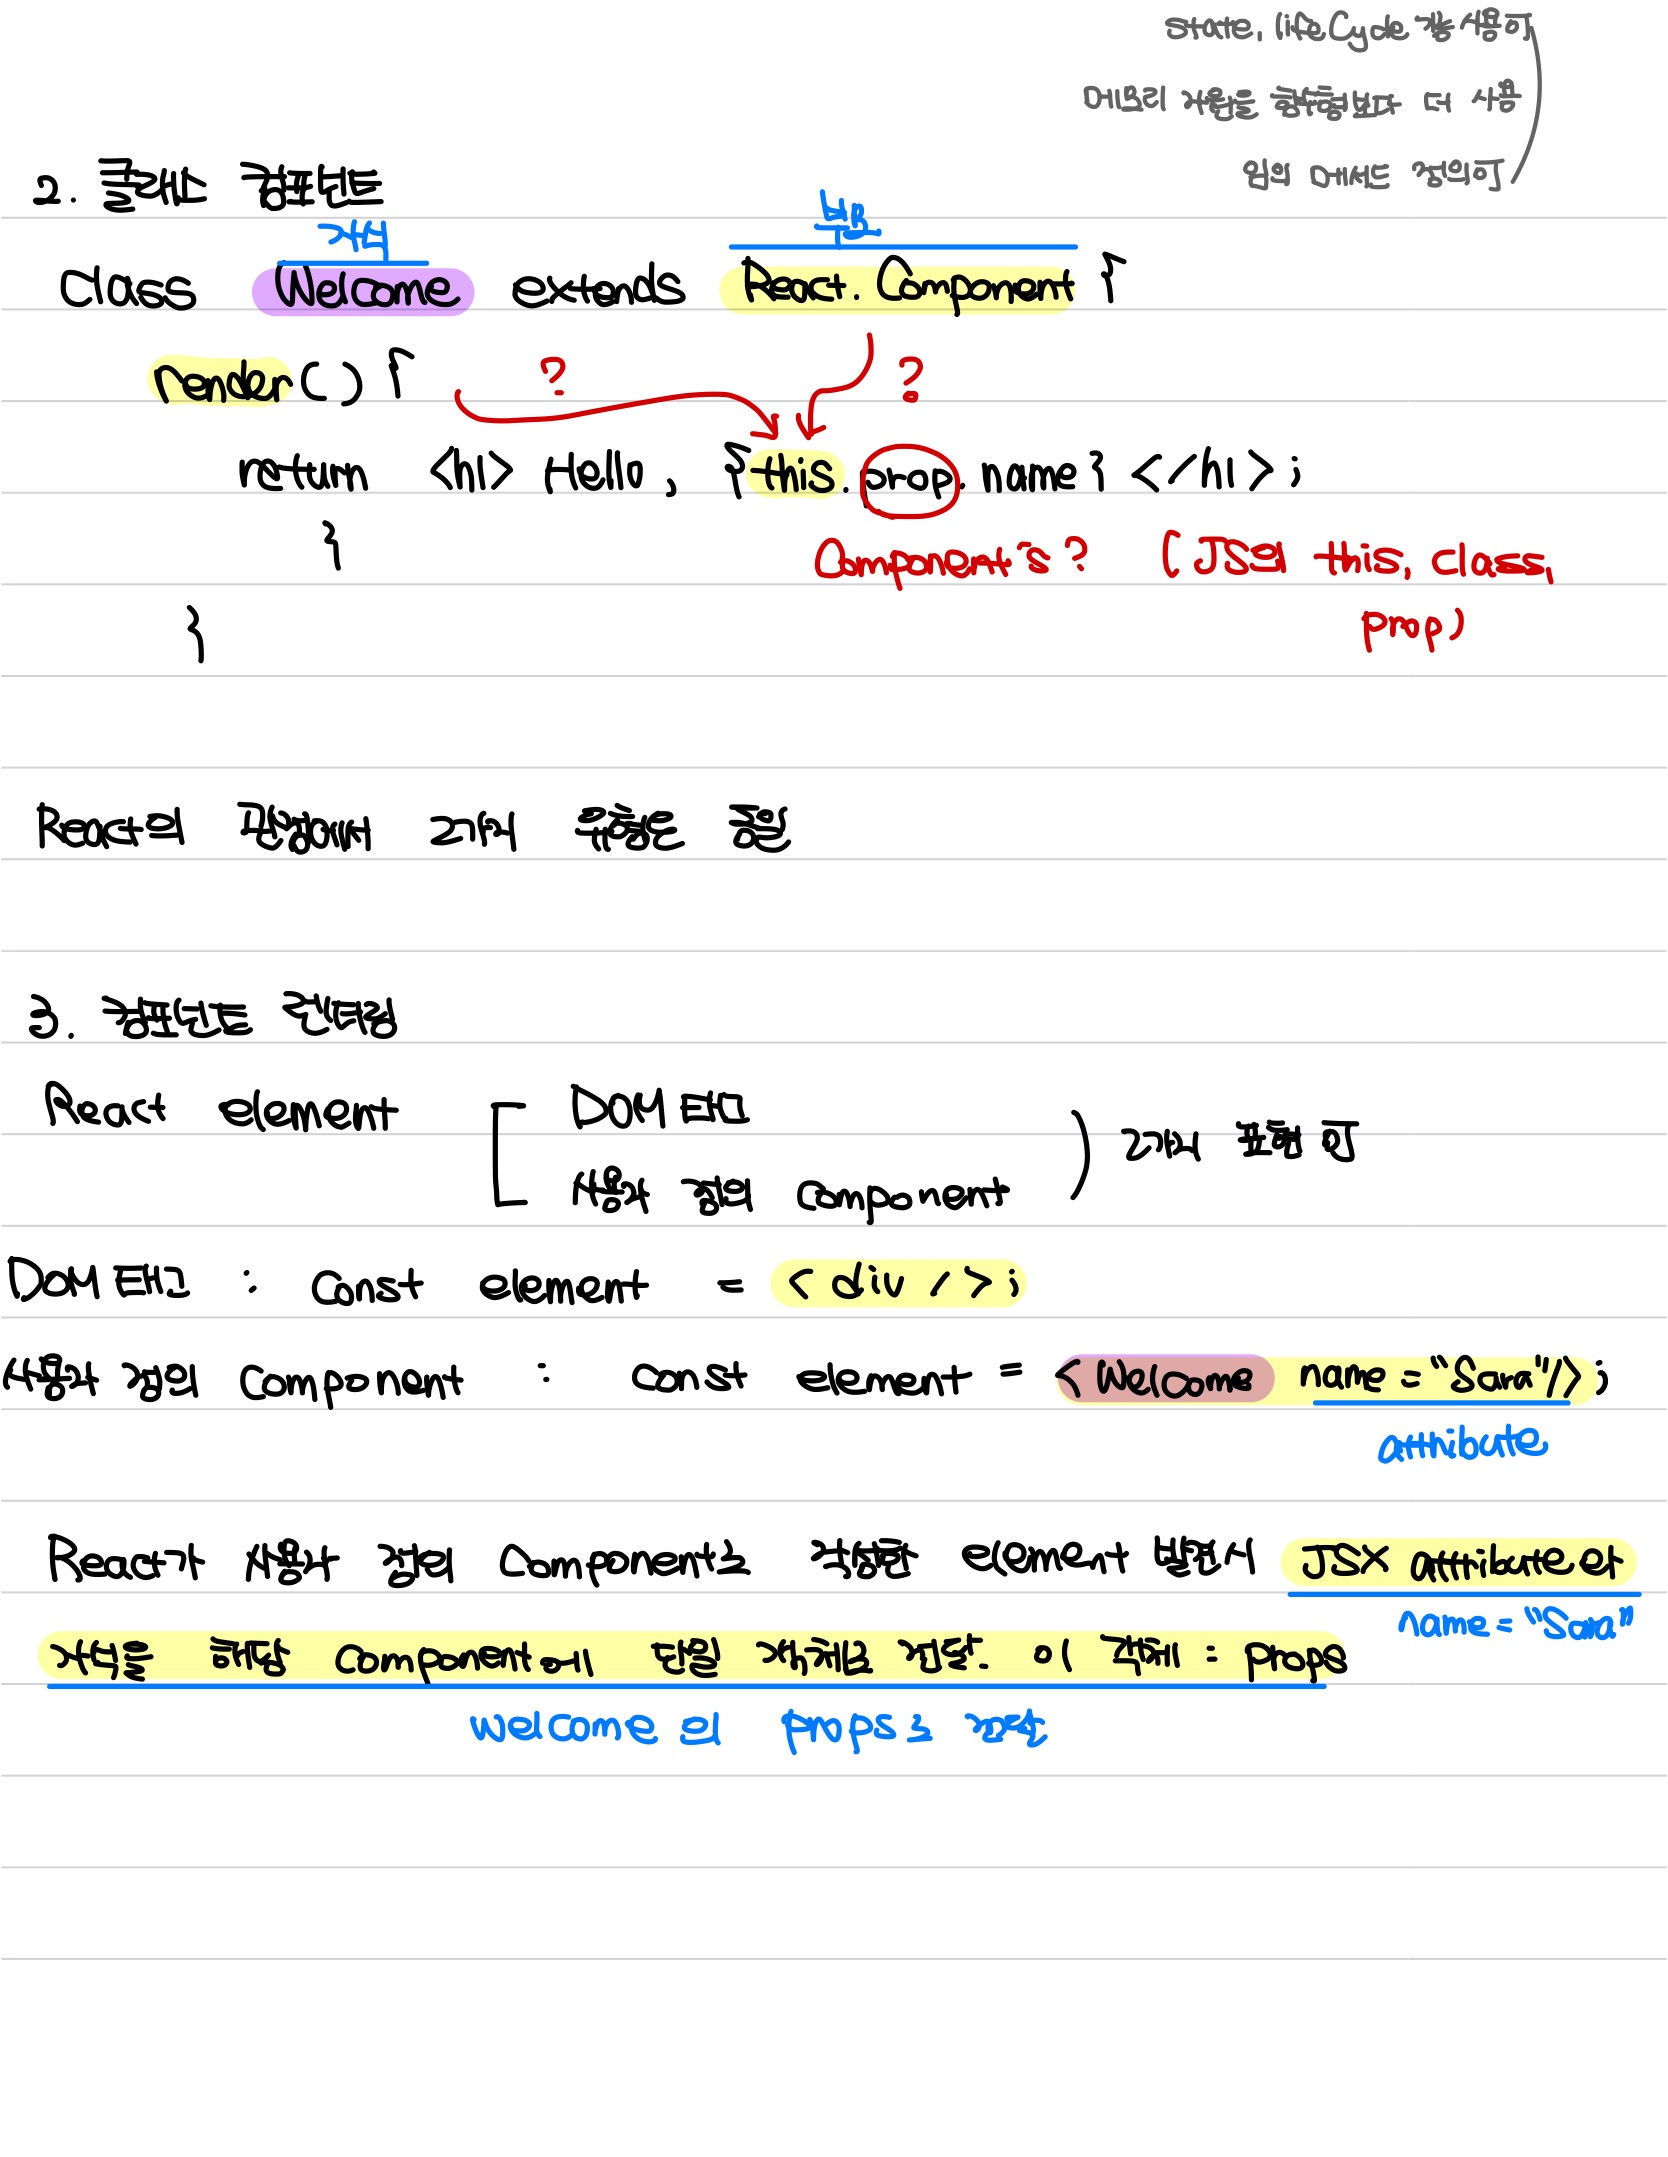 state, lifeCycle 기능 사용 가
메모리 자원을 함수형보다 더 사용
임의 메서드 정의 가
2. 클래스 컴포넌트
자식 부모
class Welcome extends React.Component {
render() {
? ?
return <h1> Hello, {this.prop.name} </h1>;
}
Component's? (JS의 this, class,
prop)
}
React의 관점에서 2가지 유형은 동일
3. 컴포넌트 렌더링
React element
DOM 태그
2가지 표현 가
사용자 정의 component
DOM 태그 : const element = <div />;
사용자 정의 component : const element = <Welcome name="Sara"/>;
attribute
React가 사용자 정의 Component로 작성한 element 발견시 JSX attribute와
name="Sara"
자식을 해당 component에 단일 객체로 전달. 이 객체 : props
welcome의 props로 전달